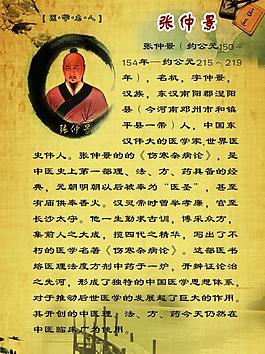 [医·学·名·人]
张仲景
张仲景
张仲景（约公元150～
154年—约公元215～219
年），名机，字仲景，
汉族，东汉南阳郡涅阳
县（今河南邓州市和镇
平县一带）人，中国东
汉伟大的医学家，世界医
史伟人。张仲景的的《伤寒杂病论》，是
中医史上第一部理、法、方、药具备的经
典，元朝明朝以后被奉为“医圣”，甚至
有庙供奉香火。汉灵帝时曾举孝廉，官至
长沙太守。他一生勤求古训，博采众方，
集前人之大成，揽四代之精华，写出了不
朽的医学名著《伤寒杂病论》。这部医书
熔医理法度方剂中药于一炉，开辨证论治
之先河，形成了独特的中国医学思想体系，
对于推动后世医学的发展起了巨大的作用。
其开创的中医理、法、方、药今天仍然在
中医临床广为使用。